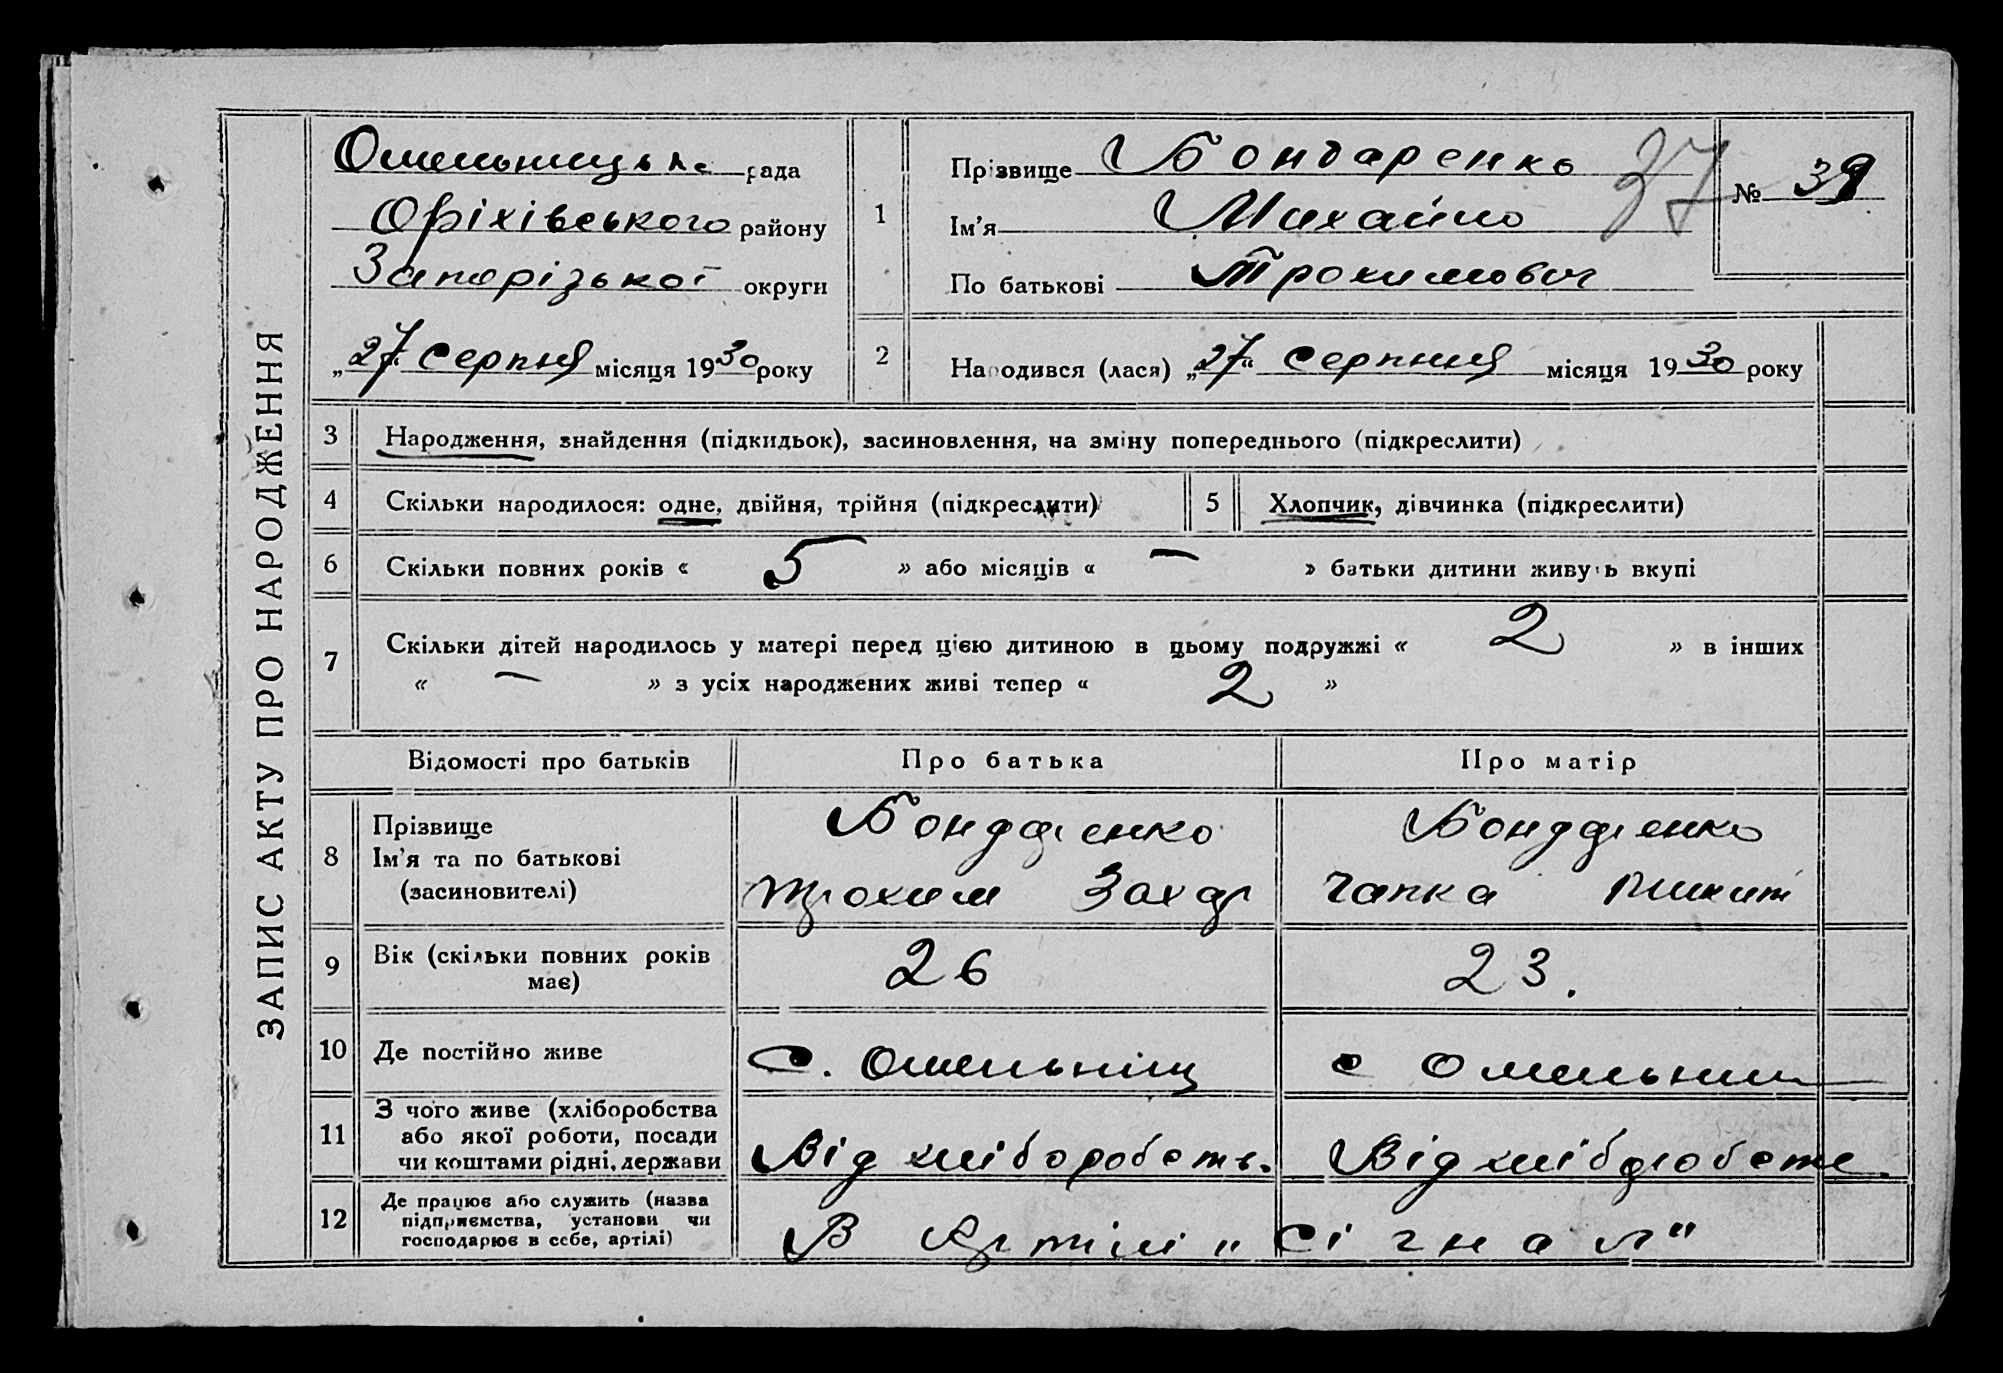 ЗАПИС АКТУ ПРО НАРОДЖЕННЯ
Омельницька рада
Оріхівського району
Запорізької округи
„27“ Серпня місяця 1930 року
1
Прізвище Бондаренко
Ім'я Михайло
По батькові Трохимович
37
№ 39
2
Народився (лася) „27“ Серпня місяця 1930 року
3 Народження, знайдення (підкидьок), засиновлення, на зміну попереднього (підкреслити)
4 Скільки народилося: одне, двійня, трійня (підкреслити)
5 Хлопчик, дівчинка (підкреслити)
6 Скільки повних років « 5 » або місяців « — » батьки дитини живуть вкупі
7 Скільки дітей народилось у матері перед цією дитиною в цьому подружжі « 2 » в інших
« — » з усіх народжених живі тепер « 2 »
Відомості про батьків Про батька Про матір
8 Прізвище
Ім'я та по батькові
(засиновителі)
Бондаренко
Трохим Захар
Бондаренко
Гапка Микит
9 Вік (скільки повних років
має)
26
23.
10 Де постійно живе
С. Омельниц
с Омельник
11 З чого живе (хліборобства
або якої роботи, посади
чи коштами рідні, держави
Від хліборобств.
Від хліборобств.
12 Де працює або служить (назва
підприємства, установи чи
господарює в себе, артілі)
В Артілі „Сігнал"